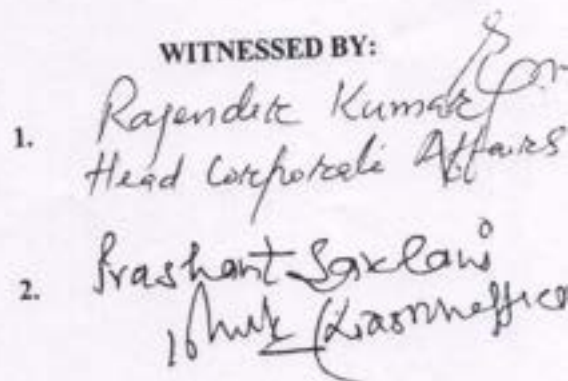 WITNESSED BY:
1. Rajender Kumar
Head Corporate Affairs
2. Prashant Saklani